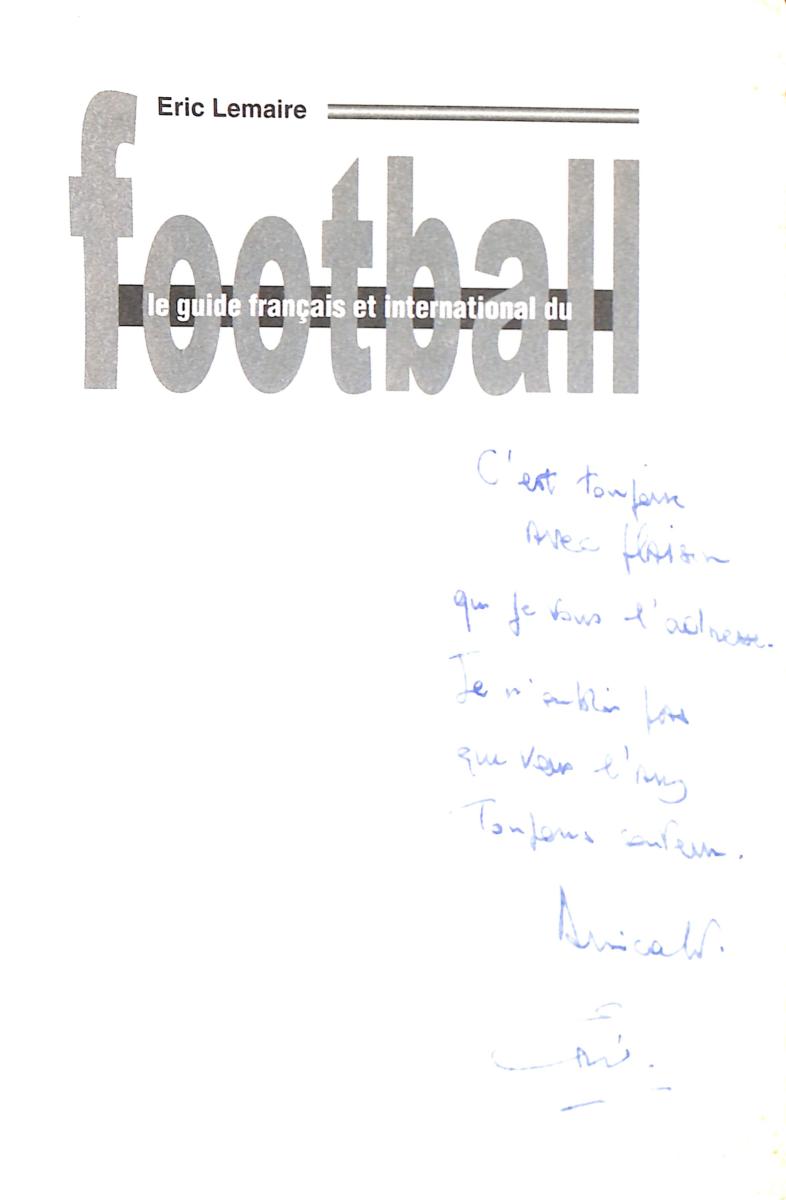 Eric Lemaire
football
le guide français et international du
C'est toujours
avec plaisir
que je vous l'adresse.
Je n'oublie pas
que vous l'avez
Toujours soutenu.
Amicalt.